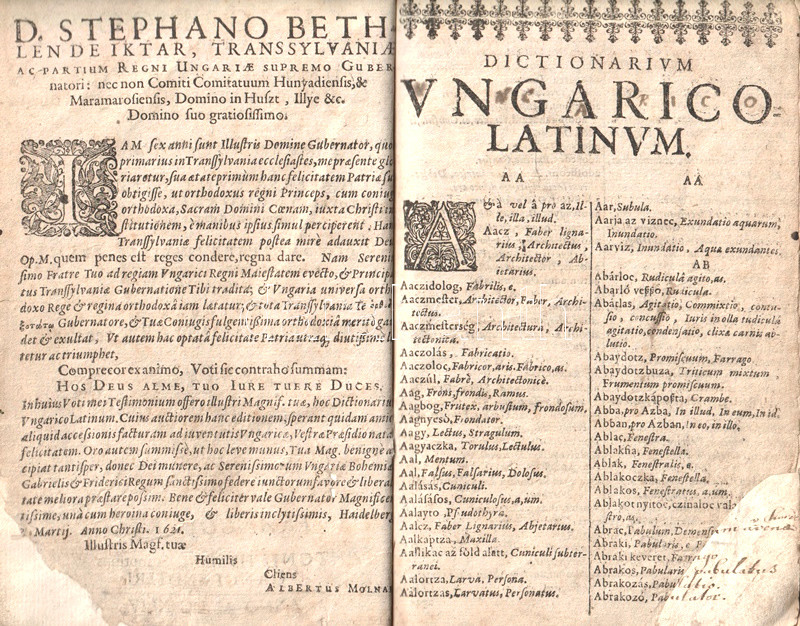 D. STEPHANO BETH-
LEN DE IKTAR, TRANSSYLVANIÆ
AC PARTIUM REGNI UNGARIÆ SUPREMO GUBER
natori: nec non Comiti Comitatuum Hunyadiensis, &
Maramarosiensis, Domino in Huszt, Illye &c.
Domino suo gratiosissimo.
IAM sex anni sunt Illustris Domine Gubernator, quo
primarius in Transsylvania ecclesiastes, me præsente glo
riaretur, sua ætate primùm hanc felicitatem Patriæ su
obtigisse, ut orthodoxus regni Princeps, cum coniug
orthodoxa, Sacram Domini Cœnam, iuxta Christi in
stitutionem, è manibus ipsius simul perciperent. Han
Transsylvaniæ felicitatem postea mirè adauxit De
Op. M. quem penes est reges condere, regna dare. Nam Seren
simo Fratre Tuo ad regiam Vngarici Regni Maiestatem evecto, & Princip
tus Transsylvaniæ Gubernatione Tibi tradita, & Vngaria universa orth
doxo Rege & regina orthodoxâ iam lætatur, & tota Transsylvania Te
Gubernatore, & Tuæ Coniugis fulgentissima orthodoxiâ meritò gau
det & exultat, Vt autem hac optatâ felicitate Patria utraq; diutissimè l
tetur ac triumphet,
Comprecor ex animo, Voti sic contraho summam:
HOS DEUS ALME, TUO IURE TUERE DUCES.
In huius Voti mei Testimonium offero Illustri Magnif. tuæ, hoc Dictionari
Vngarico Latinum. Cuius auctiorem hanc editionem, sperant quidam amic
aliquid accessionis facturam ad iuventutis Vngaricæ, Vestræ Præsidio natæ
felicitatem. Oro autem summissè, ut hoc leve munus, Tua Mag. benignè a
cipiat tantisper, donec Dei munere, ac Serenissimorum Vngariæ Bohemiæ
Gabrielis & Friderici Regum sanctissimo fœdere iunctorum favore & libera
tate meliora præstare possim. Bene & feliciter vale Gubernator Magnifice
tissime, unà cum heroina coniuge, & liberis inclytissimis, Heidelberg
Martij. Anno Christi. 1621.
Illustris Mags. tuæ
Humilis
Cliens
ALBERTUS MOLNA
DICTIONARIVM
VNGARICO-
LATINVM.
AA
A à vel â pro az, Il-
le, illa, illud.
Aacz, Faber ligna-
rius, Architectus,
Architector, Ab-
ietarius.
Aaczidolog, Fabrilis, e.
Aaczmester, Architector, Faber, Archi-
tectus.
Aaczmesterség, Architectura, Archi-
tectonica.
Aaczolás, Fabricatio.
Aaczoloc, Fabricor, aris. Fabrico, as.
Aaczúl, Fabrè, Architectonicè.
Aág, Frons, frondis, Ramus.
Aagbog, Frutex, arbustum, frondosum.
Aagnyesö, Frondator.
Aagy, Lectus, Stragulum.
Aagyaczka, Torulus, Lectulus.
Aal, Mentum.
Aal, Falsus, Falsarius, Dolosus.
Aalásás, Cuniculi.
Aalásásos, Cuniculosus, a, um.
Aalayto, Pseudothyra.
Aalcz, Faber Lignarius, Abjetarius.
Aalkaptza, Maxilla.
Aaslikac az föld alatt, Cuniculi subter-
ranei.
Aalortza, Larva, Persona.
Aalortzas, Larvatus, Personatus.
AA
Aar, Subula.
Aarja az viznec, Exundatio aquarum,
Inundatio.
Aarviz, Inundatio, Aquæ exundantes.
AB
Abárloc, Rudiculâ agito, as.
Abarló vesszö, Rudicula.
Abárlas, Agitatio, Commixtio, contu-
sio, concussio, Iuris in olla tudiculâ
agitatio, condensatio, elixæ carnis ab-
lutio.
Abaydotz, Promiscuum, Farrago.
Abaydotzbuza, Triticum mixtum
Frumentum promiscuum.
Abaydotzkáposta, Crambe.
Abba, pro Azba, In illud, In eum, In id.
Abban, pro Azban, In eo, in illo.
Ablac, Fenestra.
Ablakfia, Fenestella.
Ablak, Fenestralis, e.
Ablakoczka, Fenestella.
Ablakos, Fenestratus, a, um.
Ablakot nyitoc, czinaloc vala
stro, as.
Abrac, Pabulum, Demensum
Abraki, Pabularis, e
Abraki keveret, Farrago.
Abrakos, Pabularis
Abrakozás, Pabulatio.
Abrakozó, Pabulator.
pabulatus